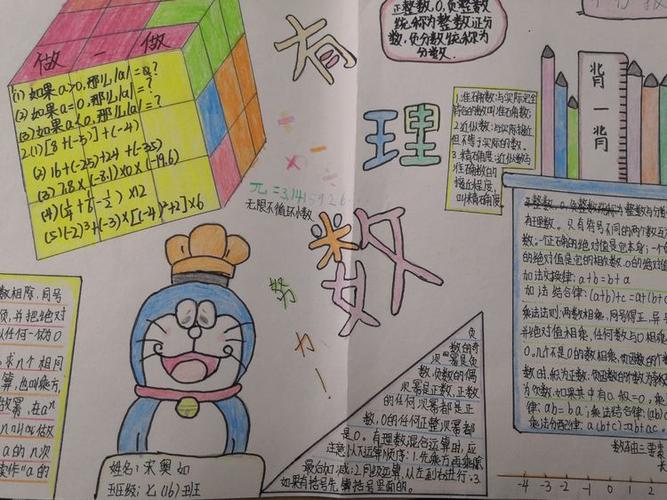 做一做
(1)如果a>0,那么|a|=a?
(2)如果a=0,那么|a|=?
(3)如果a<0,那么|a|=?
2.(1)[8+(-5)]+(-4)
(2)16+(-25)+24+(-35)
(3)(-7.8)×(-8.1)×0×(-19.6)
(5)(-2)³+(-3)×[(-4)²+2]×6
有
理
数
正整数,0,负整数
统称为整数,正分
数,负分数统称为
分数.
背
一
背
1.准确数:与实际完全
符合的数叫准确数.
2.近似数:与实际接近
但不等于实际的数.
3.精确度:近似数与
准确数的
接近程度,
叫精确度
π=3.1415926
无限不循环小数
努
力
!
数相除,同号
负,并把绝对
以任何一切为0
求n个相同
算,也叫乘方,
做幂,在aⁿ
n叫做
a的n次
读作"a的
姓名:宋奥如
班级:七(16)班
负
数的奇
次幂是负
数,负数的偶
次幂是正数,正数
的任何次幂都是正
数,0的任何正整次幂都
是0.有理数混合运算中,应
注意以下运算顺序:1.先乘方再乘除
最后加减;2.同级运算,从左到右进行;3
如果有括号先算括号里面的.
正整数,0,负整数统称为整数与分
有理数.只有符号不同的两个数互
数.一正确的绝对值是它本身;一个
的绝对值是它的相反数.0的绝对值
加法交换律:a+b=b+a
加法结合律:(a+b)+c=a+(b+
乘法法则:两数相乘,同号得正,异号
并把绝对值相乘,任何数与0相乘
0,几个不是0的数相乘,负因数的个数
数时,积为正数;负因数的个数为奇数
为负数,如果其中有a.积=0,乘
律:ab=ba;乘法结合律:(ab)
乘法分配律:a(b+c)=ab+ac.
数轴三要素
-4 -3 -2 -1 0 1 2